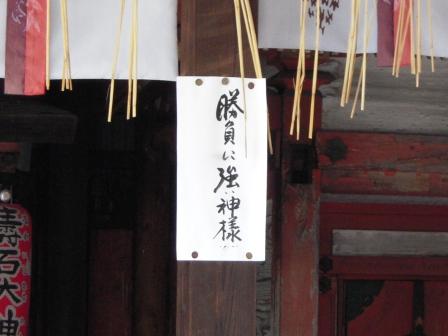 勝負に強い神様
壽石大神